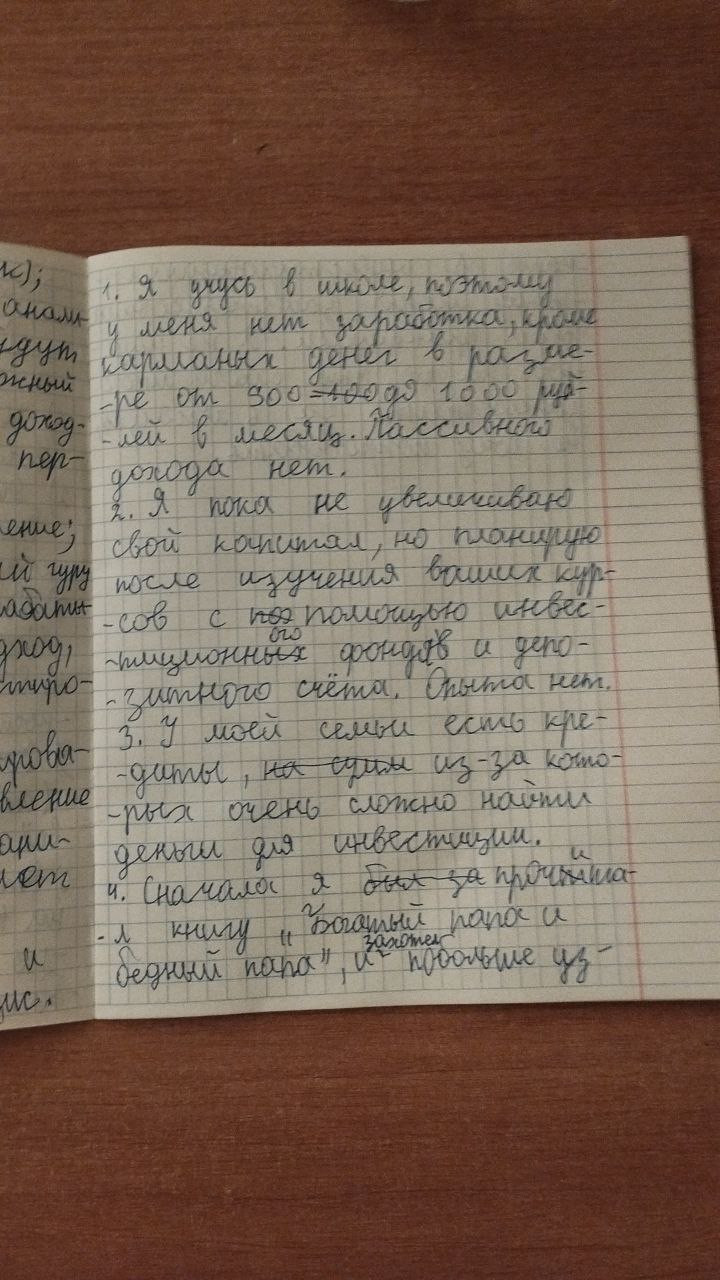 к);
анали-
дут
жный
доход-
пер-
ение;
ий гуру
рабаты-
ход,
стиро-
ирова-
вление
ани-
лет
и
ис.
1. Я учусь в школе, поэтому
у меня нет заработка, кроме
карманых денег в разме-
-ре от 900 =100 до 1000 руб-
-лей в месяц. Пассивного
дохода нет.
2. Я пока не увеличиваю
свой капитал, но планирую
после изучения ваших кур-
-сов с поз помощью инвес-
-тиционных фондов и депо-
ого
-зитного счёта. Опыта нет.
3. У моей семьи есть кре-
-диты, на едим из-за кото-
-рых очень сложно найти
деньги для инвестиции.
4. Сначала я был за прочита-
-л книгу „Богатый папа и
захотел
бедный папа", и побольше уз-